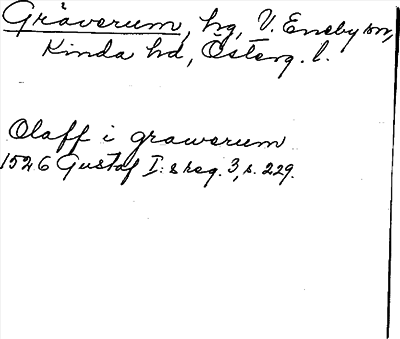 Gråverum, hg, V. Eneby sn,
Kinda hd, Österg. l.
Olaff i grawerum
1526 Gustaf I:s reg. 3, s. 229.